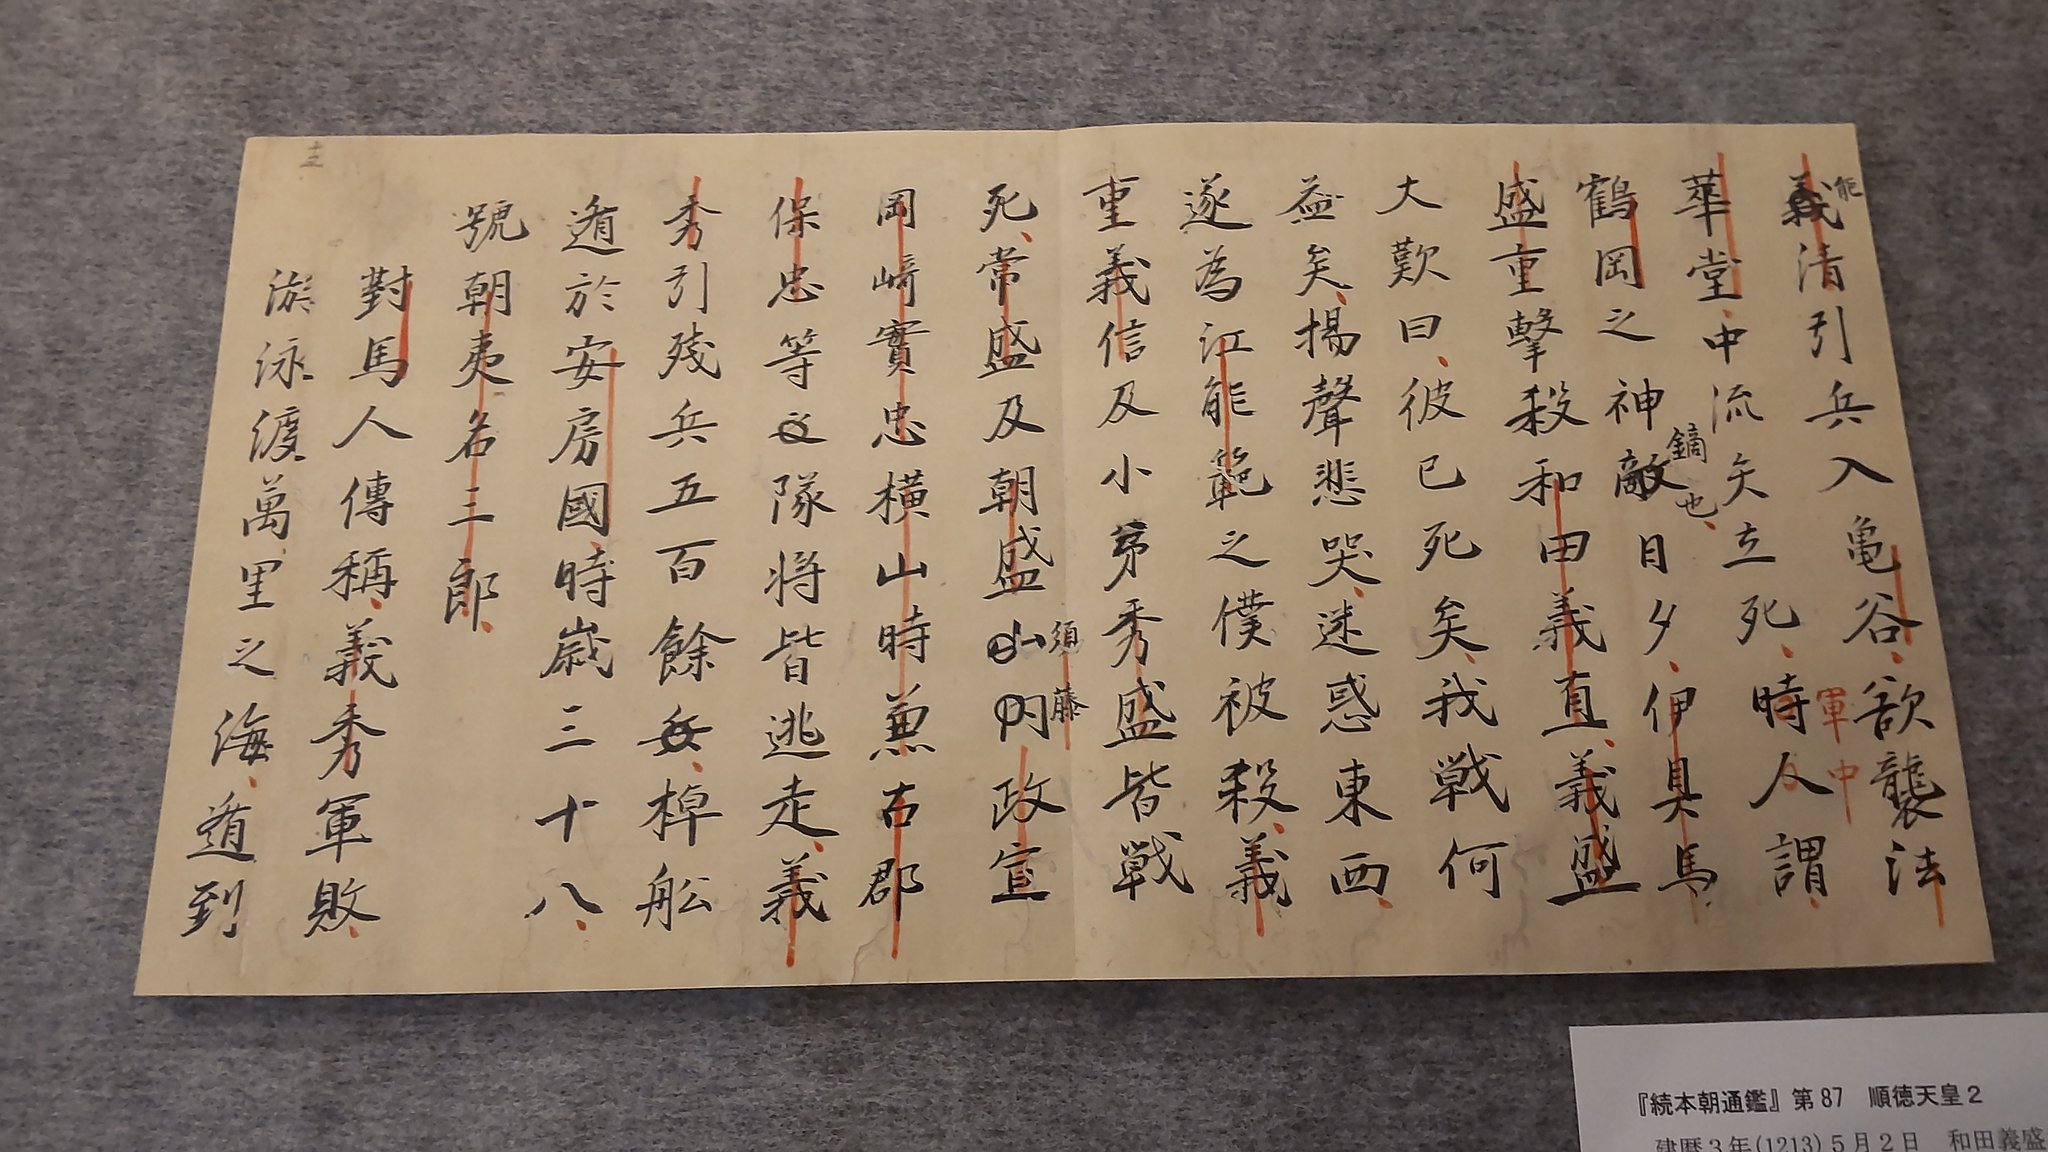 義清引兵入亀谷欲襲法
能
華堂中流矢立死時人謂
軍中
鶴岡之神敵日夕伊具馬
鏑也
盛重擊殺和田義直義盛
大歎曰彼已死矣我戦何
益矣揚聲悲哭迷惑東西
遂為江能範之僕被殺義
重義信及小弟秀盛皆戦
死常盛及朝盛山内政宣
須藤
岡﨑實忠橫山時兼古郡
保忠等隊将皆逃走義
秀引残兵五百餘棹舩
遁於安房國時歳三十八
號朝夷名三郎
對馬人傳稱義秀軍敗
游泳渡萬里之海遁到
『続本朝通鑑』第87 順徳天皇2
建暦3年(1213)5月2日 和田義盛